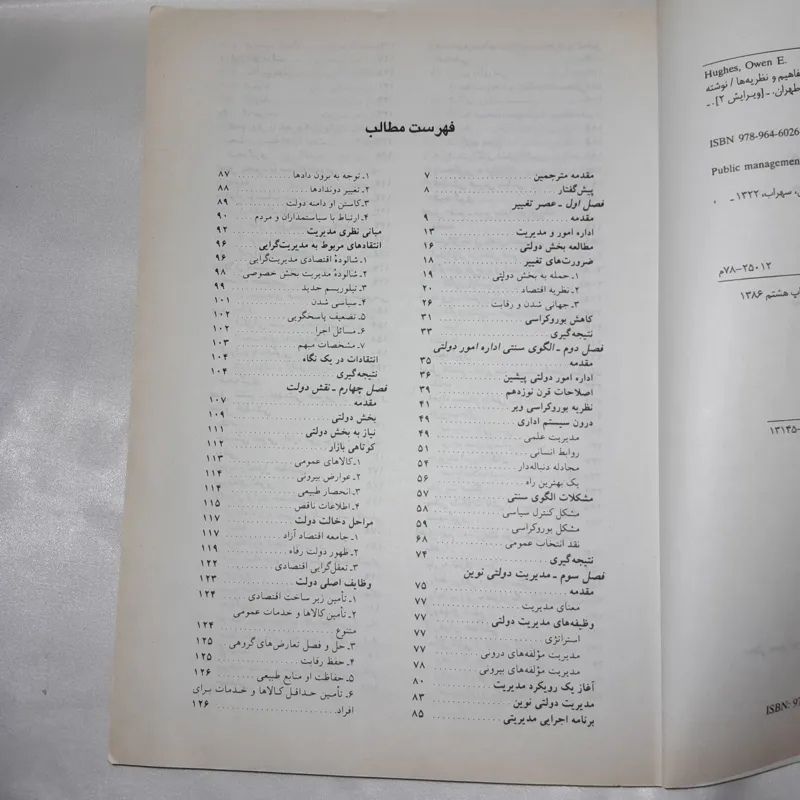 فهرست مطالب
مقدمه مترجمین ۷
پیش‌گفتار ۸
فصل اول ـ عصر تغییر
مقدمه ۹
اداره امور و مدیریت ۱۳
مطالعه بخش دولتی ۱۶
ضرورت‌های تغییر ۱۸
۱ـ حمله به بخش دولتی ۱۹
۲ـ نظریه اقتصاد ۲۰
۳ـ جهانی شدن و رقابت ۲۶
کاهش بوروکراسی ۳۱
نتیجه‌گیری ۳۳
فصل دوم ـ الگوی سنتی اداره امور دولتی
مقدمه ۳۵
اداره امور دولتی پیشین ۳۶
اصلاحات قرن نوزدهم ۳۹
نظریه بوروکراسی وبر ۴۱
درون سیستم اداری ۴۹
مدیریت علمی ۴۹
روابط انسانی ۵۱
مجادله دنباله‌دار ۵۴
یک بهترین راه ۵۶
مشکلات الگوی سنتی ۵۷
مشکل کنترل سیاسی ۵۸
مشکل بوروکراسی ۵۹
نقد انتخاب عمومی ۶۸
نتیجه‌گیری ۷۴
فصل سوم ـ مدیریت دولتی نوین
مقدمه ۷۵
معنای مدیریت ۷۷
وظیفه‌های مدیریت دولتی ۷۷
استراتژی ۷۷
مدیریت مؤلفه‌های درونی ۷۷
مدیریت مؤلفه‌های بیرونی ۷۸
آغاز یک رویکرد مدیریت ۸۰
مدیریت دولتی نوین ۸۳
برنامه اجرایی مدیریتی ۸۵
۱ـ توجه به برون دادها ۸۷
۲ـ تغییر دروندادها ۸۸
۳ـ کاستن از دامنه دولت ۸۹
۴ـ ارتباط با سیاستمداران و مردم ۹۰
مبانی نظری مدیریت ۹۲
انتقادهای مربوط به مدیریت‌گرایی ۹۶
۱ـ شالودهٔ اقتصادی مدیریت‌گرایی ۹۶
۲ـ شالودهٔ مدیریت بخش خصوصی ۹۸
۳ـ تیلوریسم جدید ۹۹
۴ـ سیاسی شدن ۱۰۱
۵ـ تضعیف پاسخگویی ۱۰۲
۶ـ مسائل اجرا ۱۰۲
۷ـ مشخصات مبهم ۱۰۳
انتقادات در یک نگاه ۱۰۴
نتیجه‌گیری ۱۰۴
فصل چهارم ـ نقش دولت
مقدمه ۱۰۷
بخش دولتی ۱۰۹
نیاز به بخش دولتی ۱۱۱
کوتاهی بازار ۱۱۲
۱ـ کالاهای عمومی ۱۱۳
۲ـ عوارض بیرونی ۱۱۴
۳ـ انحصار طبیعی ۱۱۴
۴ـ اطلاعات ناقص ۱۱۵
مراحل دخالت دولت ۱۱۷
۱ـ جامعه اقتصاد آزاد ۱۱۷
۲ـ ظهور دولت رفاه ۱۱۹
۳ـ تعقل‌گرایی اقتصادی ۱۲۲
وظایف اصلی دولت ۱۲۳
۱ـ تأمین زیر ساخت اقتصادی ۱۲۴
۲ـ تأمین کالاها و خدمات عمومی
متنوع ۱۲۴
۳ـ حل و فصل تعارض‌های گروهی ۱۲۵
۴ـ حفظ رقابت ۱۲۵
۵ـ حفاظت از منابع طبیعی ۱۲۶
۶ـ تأمین حداقل کالاها و خدمات برای
افراد ۱۲۶
Hughes, Owen E.
مفاهیم و نظریه‌ها / نوشته
طهران. ـ [ویرایش ۲]. ـ
ISBN 978-964-6026
Public management
، سهراب، ۱۳۲۲ ـ ،
۷۸-۲۵۰۱۲م
چاپ هشتم ۱۳۸۶
۱۳۱۴۵-
ISBN: 97